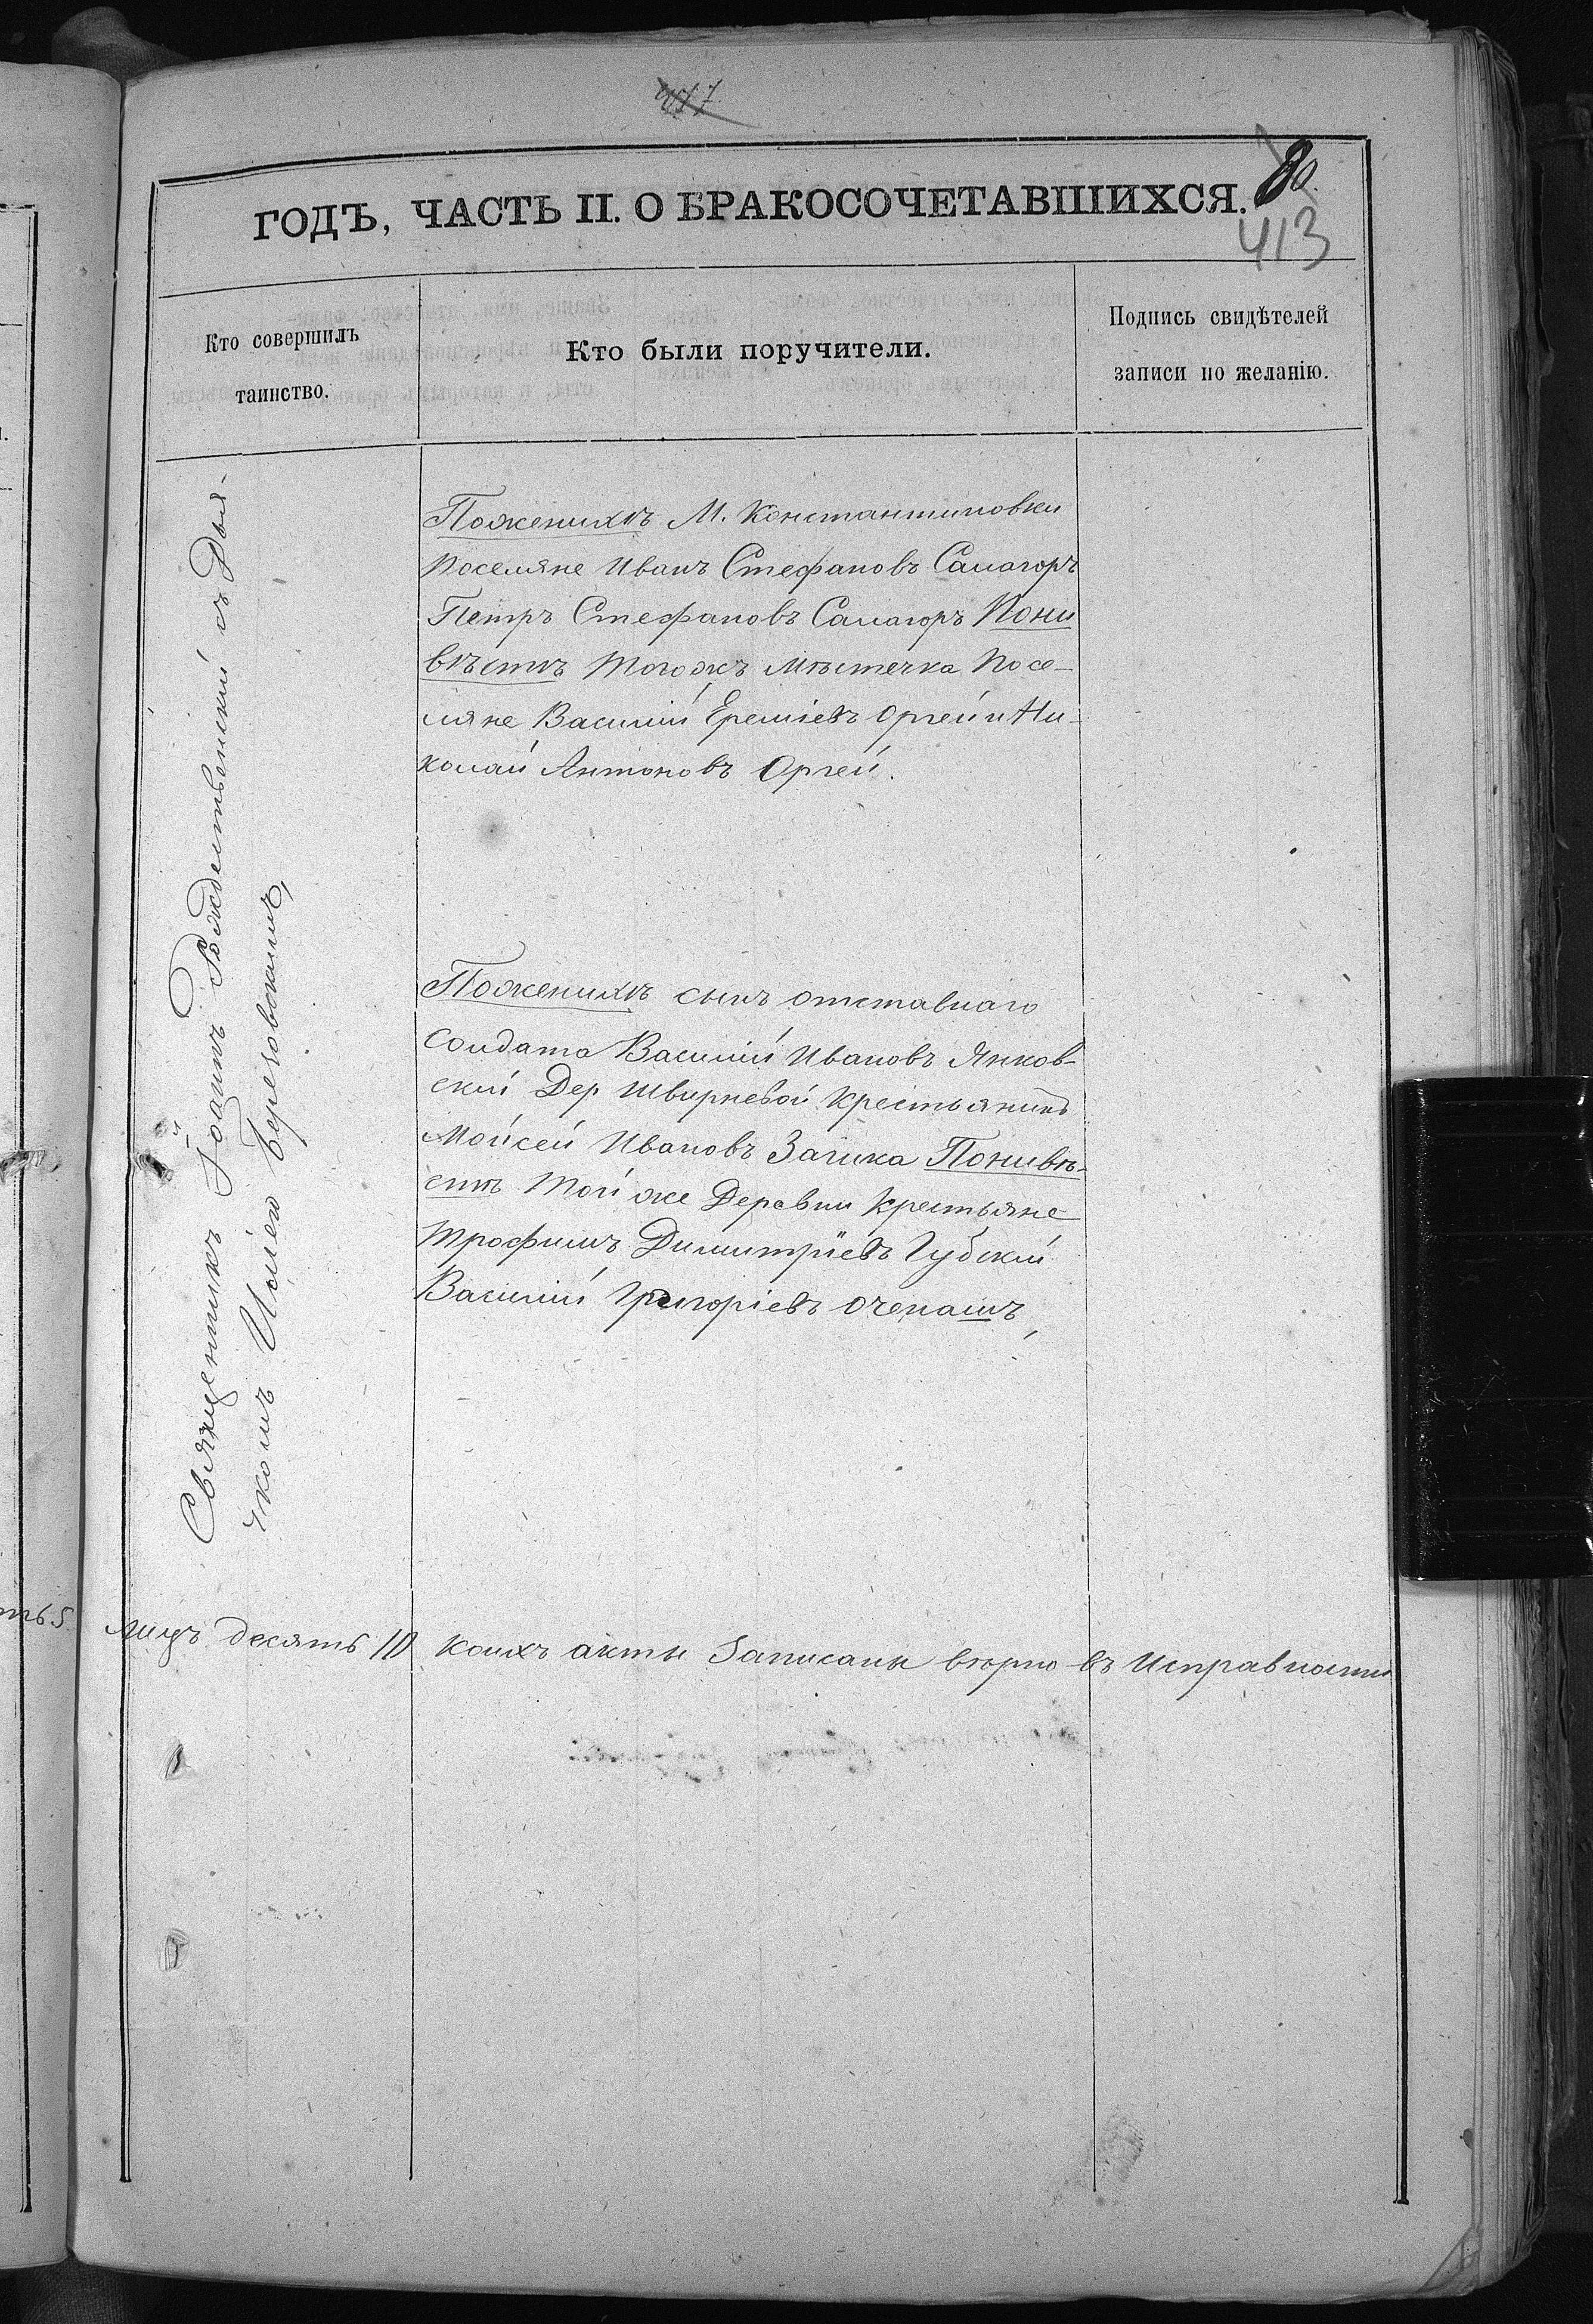 417
80.
ГОДЪ, ЧАСТЬ II. О БРАКОСОЧЕТАВШИХСЯ.
413
Кто совершилъ
таинство.
Кто были поручители.
Подпись свидѣтелей
записи по желанію.
Священникъ Іоаннъ Рождественскій съ Дья-
чкомъ Иліею Березовскимъ,
Поженихѣ М. Константиновки
Поселяне Иванъ Стефановъ Самагоръ
Петръ Стефановъ Самагоръ Пони
вѣстѣ Тогожъ Мѣстечка Посе-
ляне Василій Ереміевъ Оргей и Ни-
колай Антоновъ Оргей.
Поженихѣ сынъ отставнаго
Солдата Василій Ивановъ Янков-
скій Дер Швирневой Крестьянинъ
Мойсей Ивановъ Заика Понивѣ-
стѣ Той же Деревни Крестьяне
Трофимъ Димитріевъ Губскій
Василій Григоріевъ Оченашъ,
ть 5
Лицъ десять 10 Коихъ акты Записаны вѣрно въ Исправности